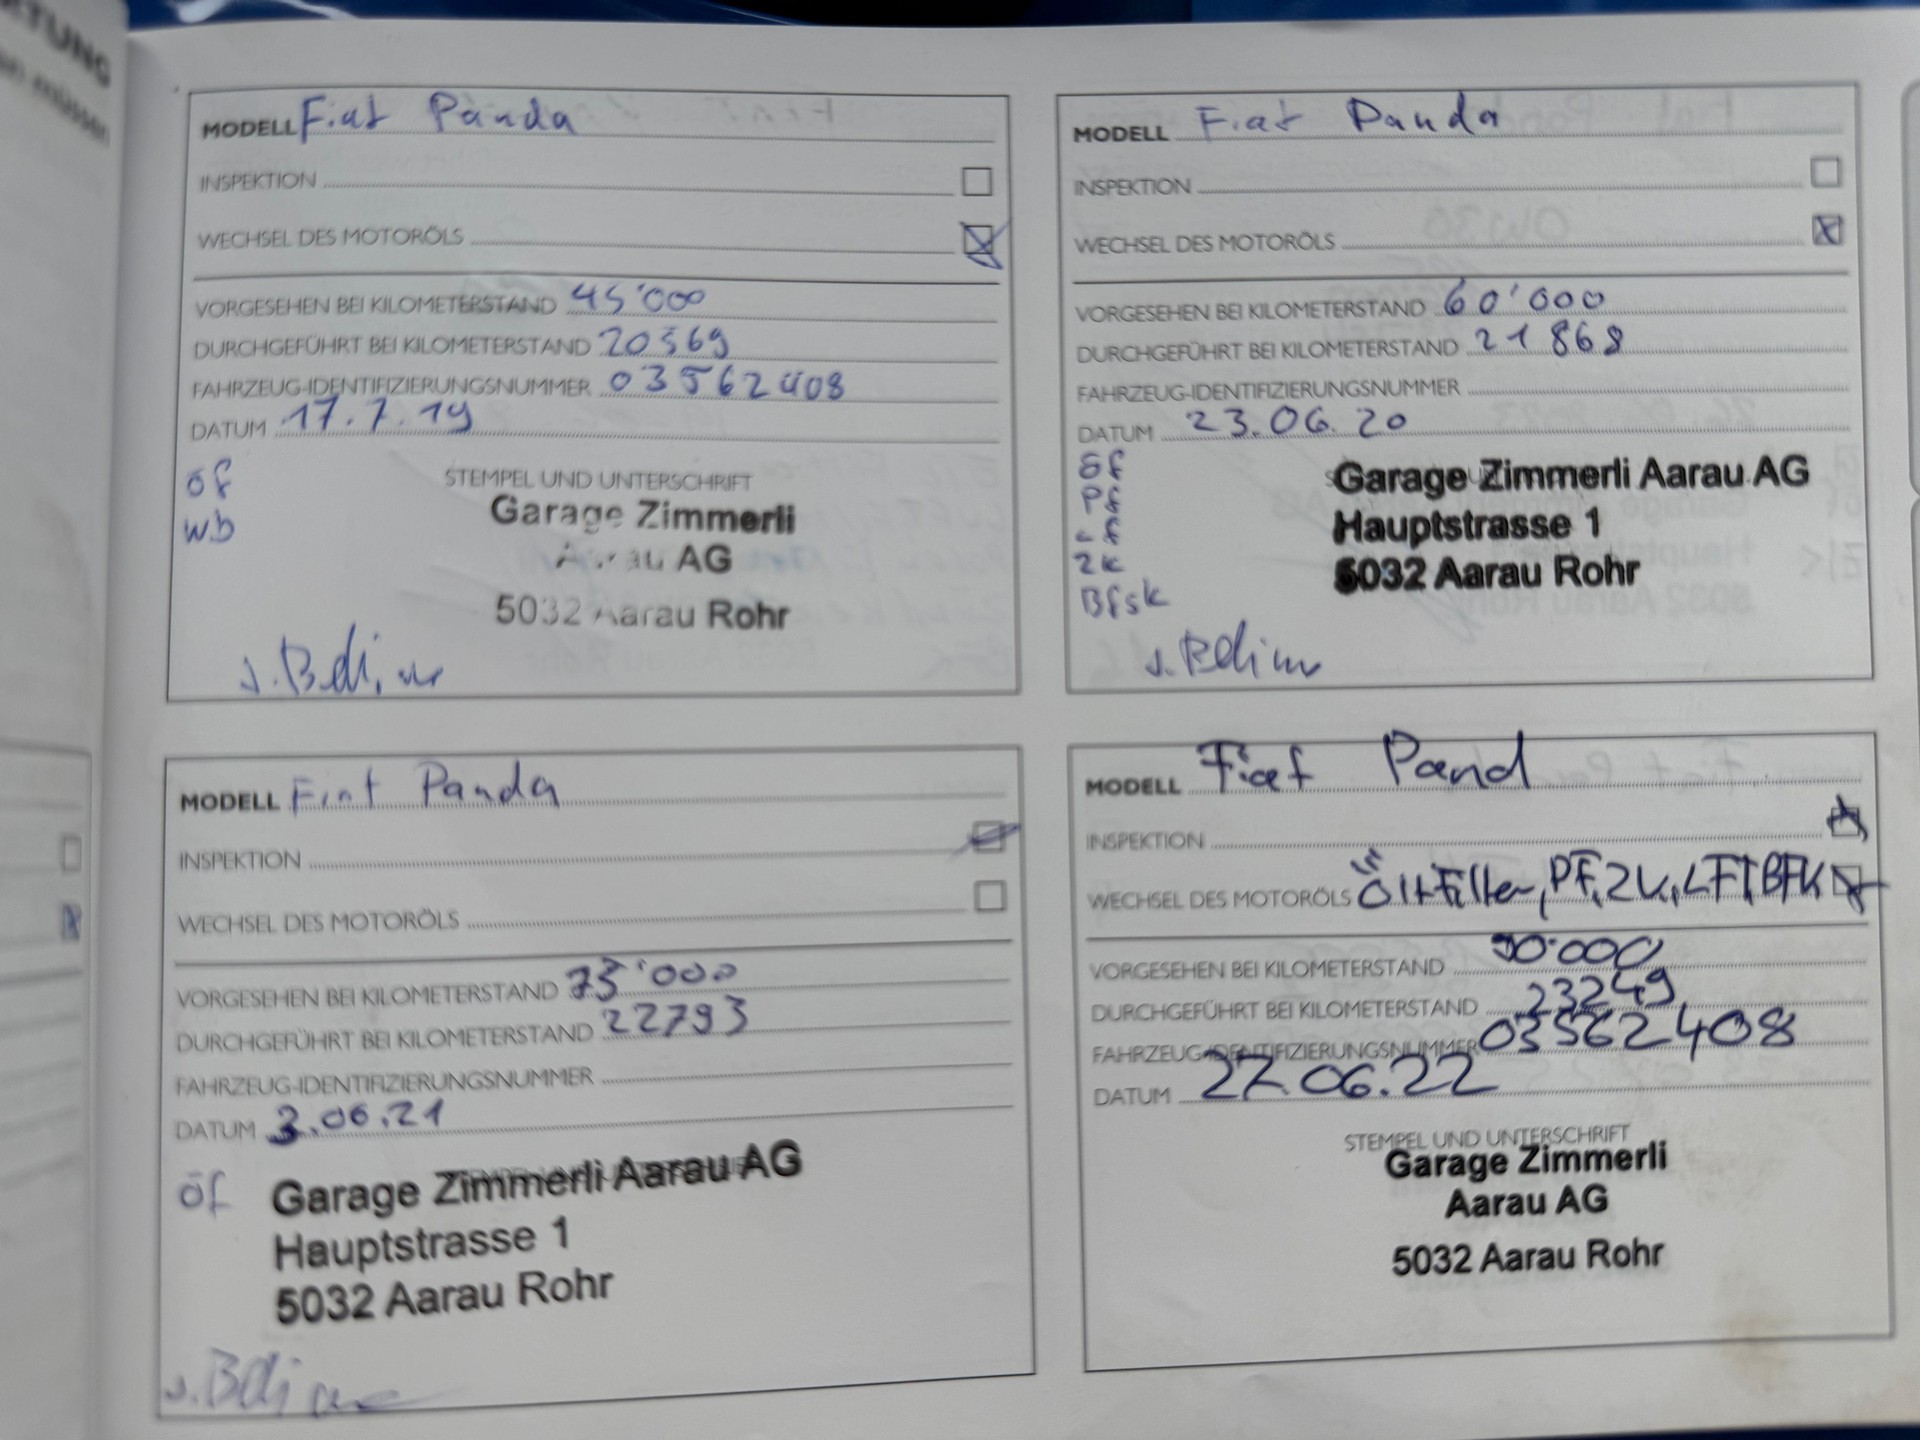 RTUNG
en müssen
MODELL Fiat Panda
INSPEKTION
WECHSEL DES MOTORÖLS
VORGESEHEN BEI KILOMETERSTAND 45'000
DURCHGEFÜHRT BEI KILOMETERSTAND 20569
FAHRZEUG-IDENTIFIZIERUNGSNUMMER 03562408
DATUM 17.7.19
öf
wb
STEMPEL UND UNTERSCHRIFT
Garage Zimmerli
Aarau AG
5032 Aarau Rohr
MODELL Fiat Panda
INSPEKTION
WECHSEL DES MOTORÖLS
VORGESEHEN BEI KILOMETERSTAND 60'000
DURCHGEFÜHRT BEI KILOMETERSTAND 21868
FAHRZEUG-IDENTIFIZIERUNGSNUMMER
DATUM 23.06.20
öf
Pf
Lf
Zk
Bfsk
Garage Zimmerli Aarau AG
Hauptstrasse 1
5032 Aarau Rohr
MODELL Fiat Panda
INSPEKTION
WECHSEL DES MOTORÖLS
VORGESEHEN BEI KILOMETERSTAND 75'000
DURCHGEFÜHRT BEI KILOMETERSTAND 22793
FAHRZEUG-IDENTIFIZIERUNGSNUMMER
DATUM 3.06.21
öf
Garage Zimmerli Aarau AG
Hauptstrasse 1
5032 Aarau Rohr
MODELL Fiat Pand
INSPEKTION
WECHSEL DES MOTORÖLS Öl+Filter, PF, ZK, LFT, BFK
VORGESEHEN BEI KILOMETERSTAND 90'000
DURCHGEFÜHRT BEI KILOMETERSTAND 23249
FAHRZEUG-IDENTIFIZIERUNGSNUMMER 03562408
DATUM 27.06.22
STEMPEL UND UNTERSCHRIFT
Garage Zimmerli
Aarau AG
5032 Aarau Rohr